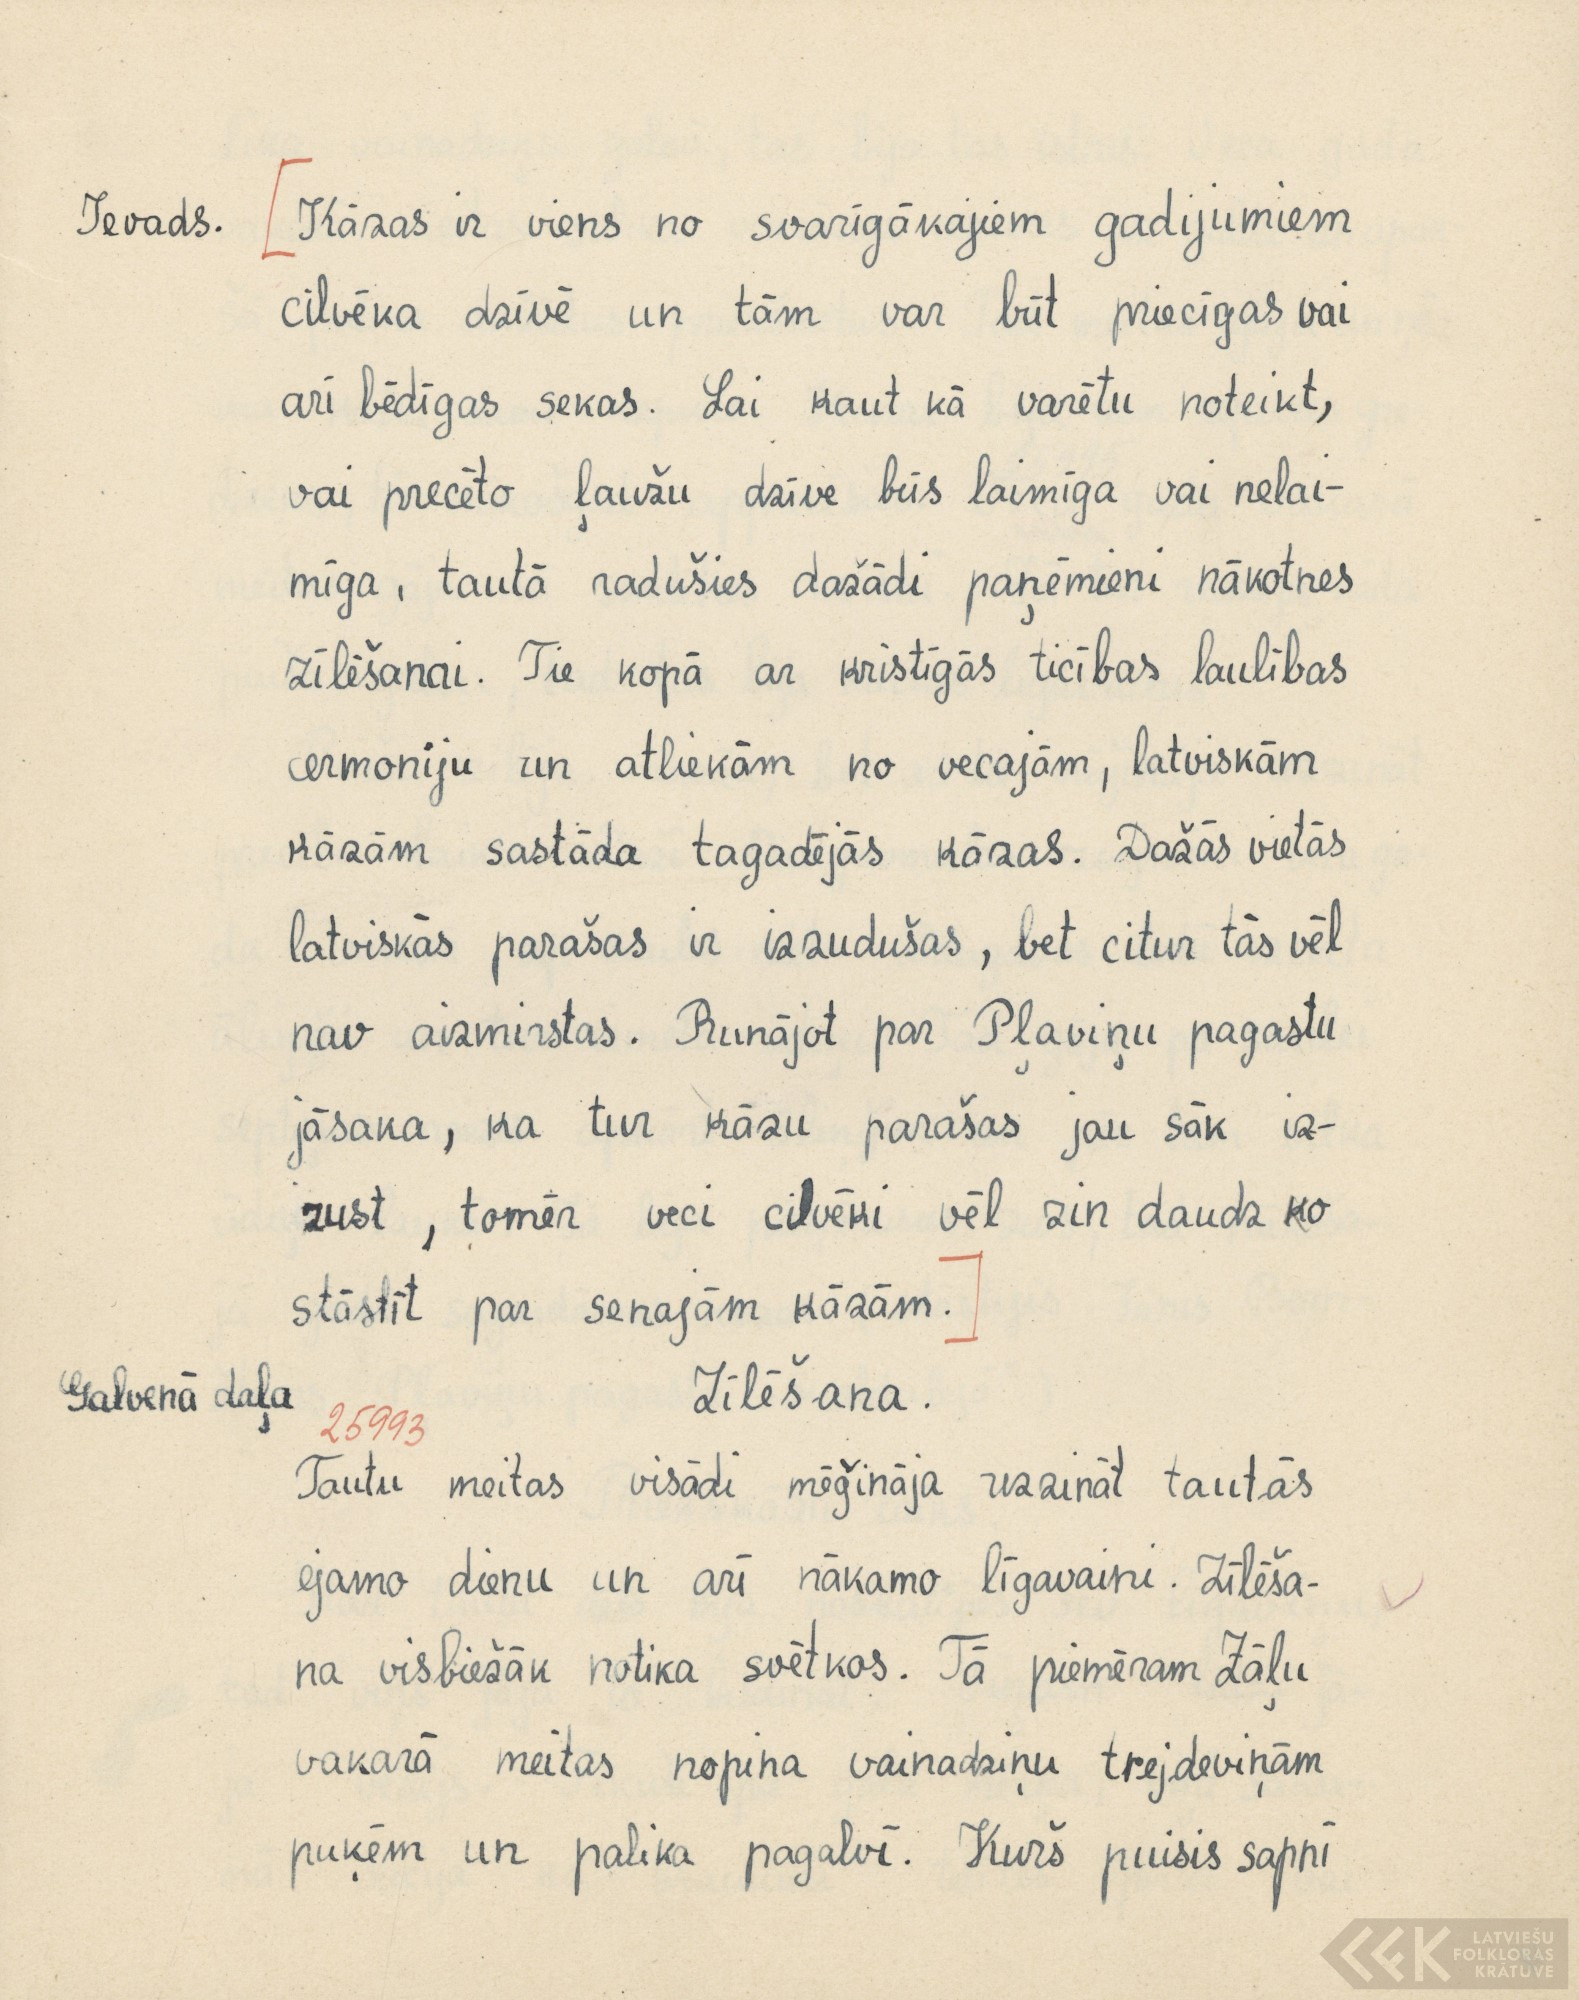 Ievads. [Kāzas ir viens no svarīgākajiem gadijumiem
cilvēka dzīvē un tām var būt priecīgas vai
arī bēdīgas sekas. Lai kaut kā varētu noteikt,
vai precēto ļaužu dzīve būs laimīga vai nelai-
mīga, tautā radušies dažādi paņēmieni nākotnes
zīlēšanai. Tie kopā ar kristīgās ticības laulības
cermoniju un atliekām no vecajām, latviskām
kāzām sastāda tagadējās kāzas. Dažās vietās
latviskās parašas ir izzudušas, bet citur tās vēl
nav aizmirstas. Runājot par Pļaviņu pagastu
jāsaka, ka tur kāzu parašas jau sāk iz-
zust, tomēr veci cilvēki vēl zin daudz ko
stāstīt par senajām kāzām.]
Galvenā daļa Zīlēšana.
25993
Tautu meitas visādi mēģināja uzzināt tautās
ejamo dienu un arī nākamo līgavaini. Zīlēša-
na visbiežāk notika svētkos. Tā piemēram Zāļu
vakarā meitas nopina vainadziņu trejdeviņām
puķēm un palika pagalvī. Kurš puisis sapnī
LATVIEŠU
FOLKLORAS
KRĀTUVE